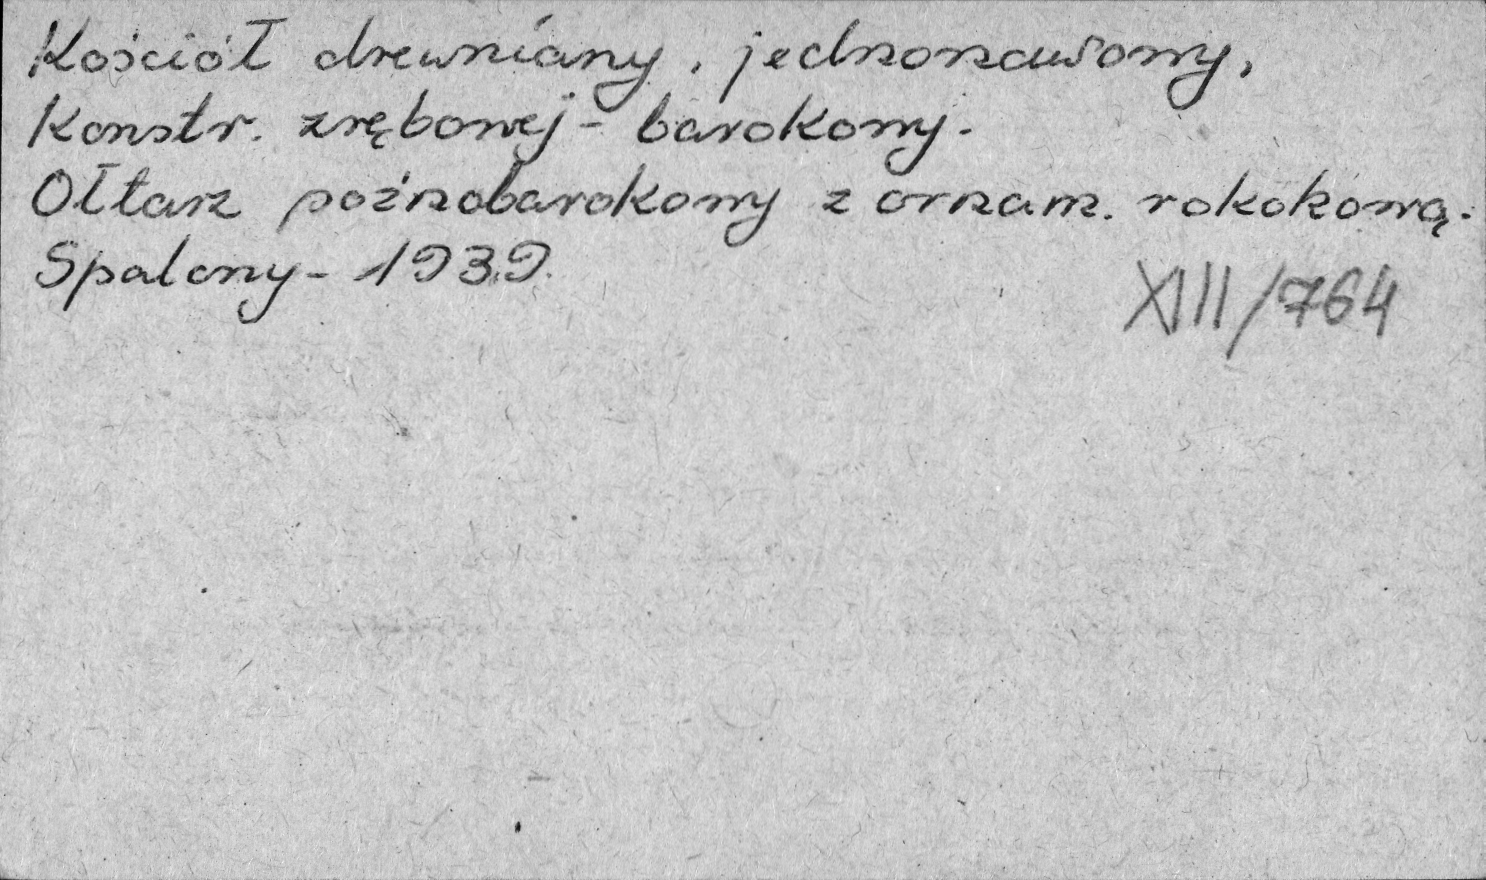 Kościół drewniany, jednonawowy,
Konstr. zrębowej - barokowy.
Ołtarz poźnobarokowy z ornam. rokokową.
Spalony - 1939.
XIII/764